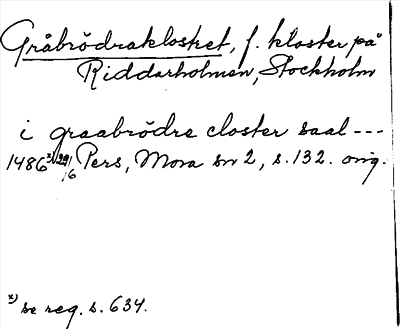 Gråbrödraklosket, f. kloster på
Riddarholmen, Stockholm
i graabrödre closter saal ---
1486 x) 29/6 Pers, Mora sn 2, s. 132. orig.
x) se reg. s. 634.